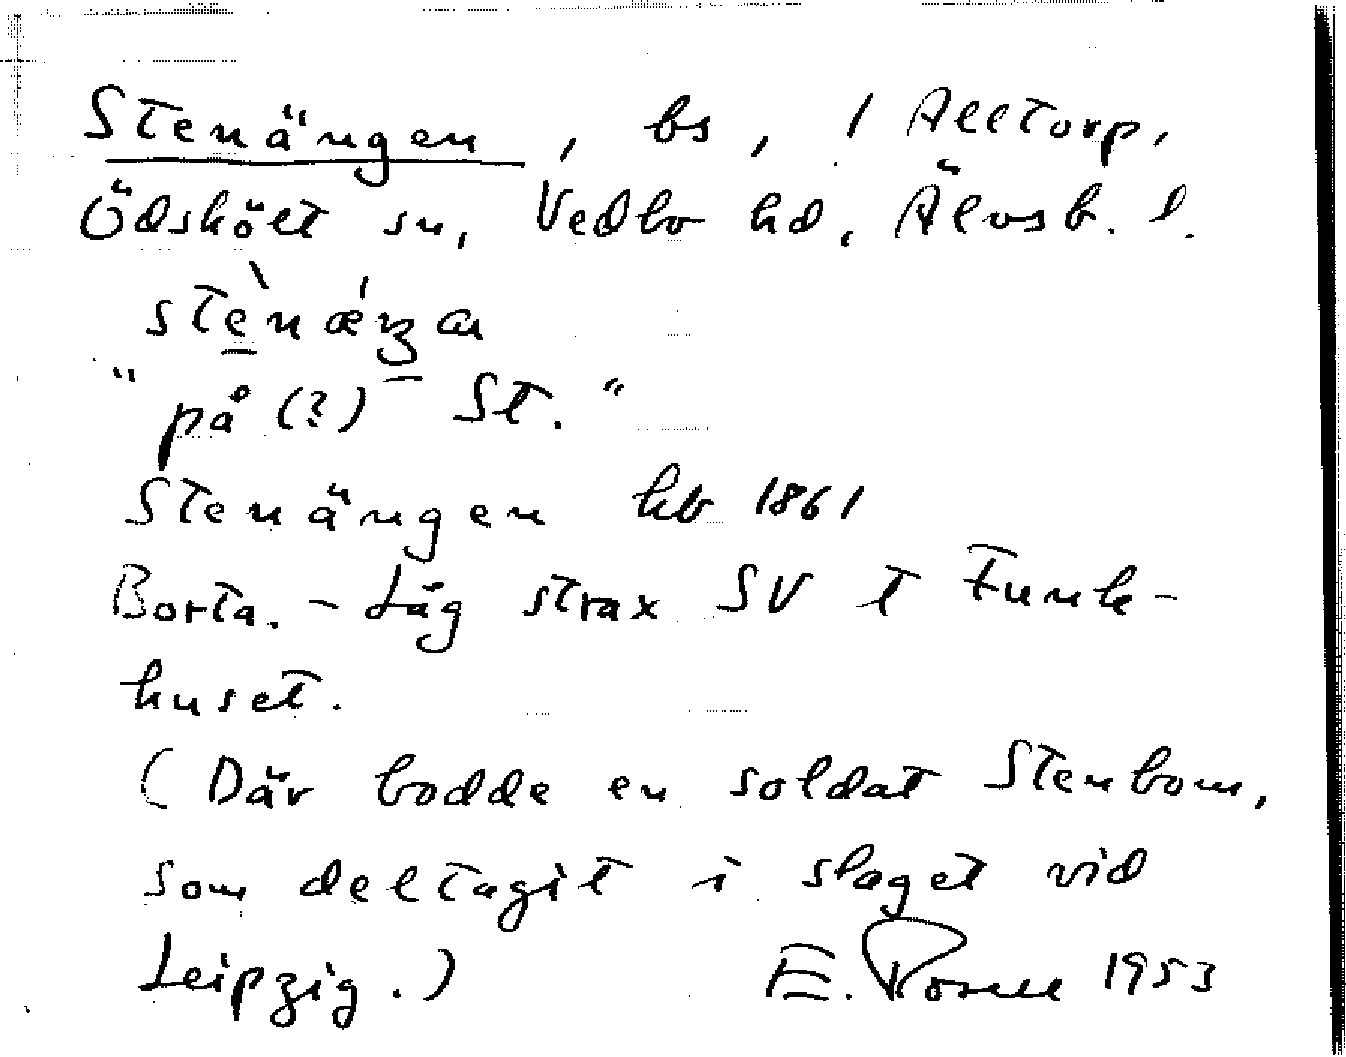 Stenängen, bs, i Alltorp,
Ödskölt sn, Vedbo hd, Älvsb. l.
"på (?) St."
Stenängen hb 1861
Borta. - Låg strax SV t Funk-
huset.
(Där bodde en soldat Stenbom,
som deltagit i slaget vid
Leipzig.) E. 1953